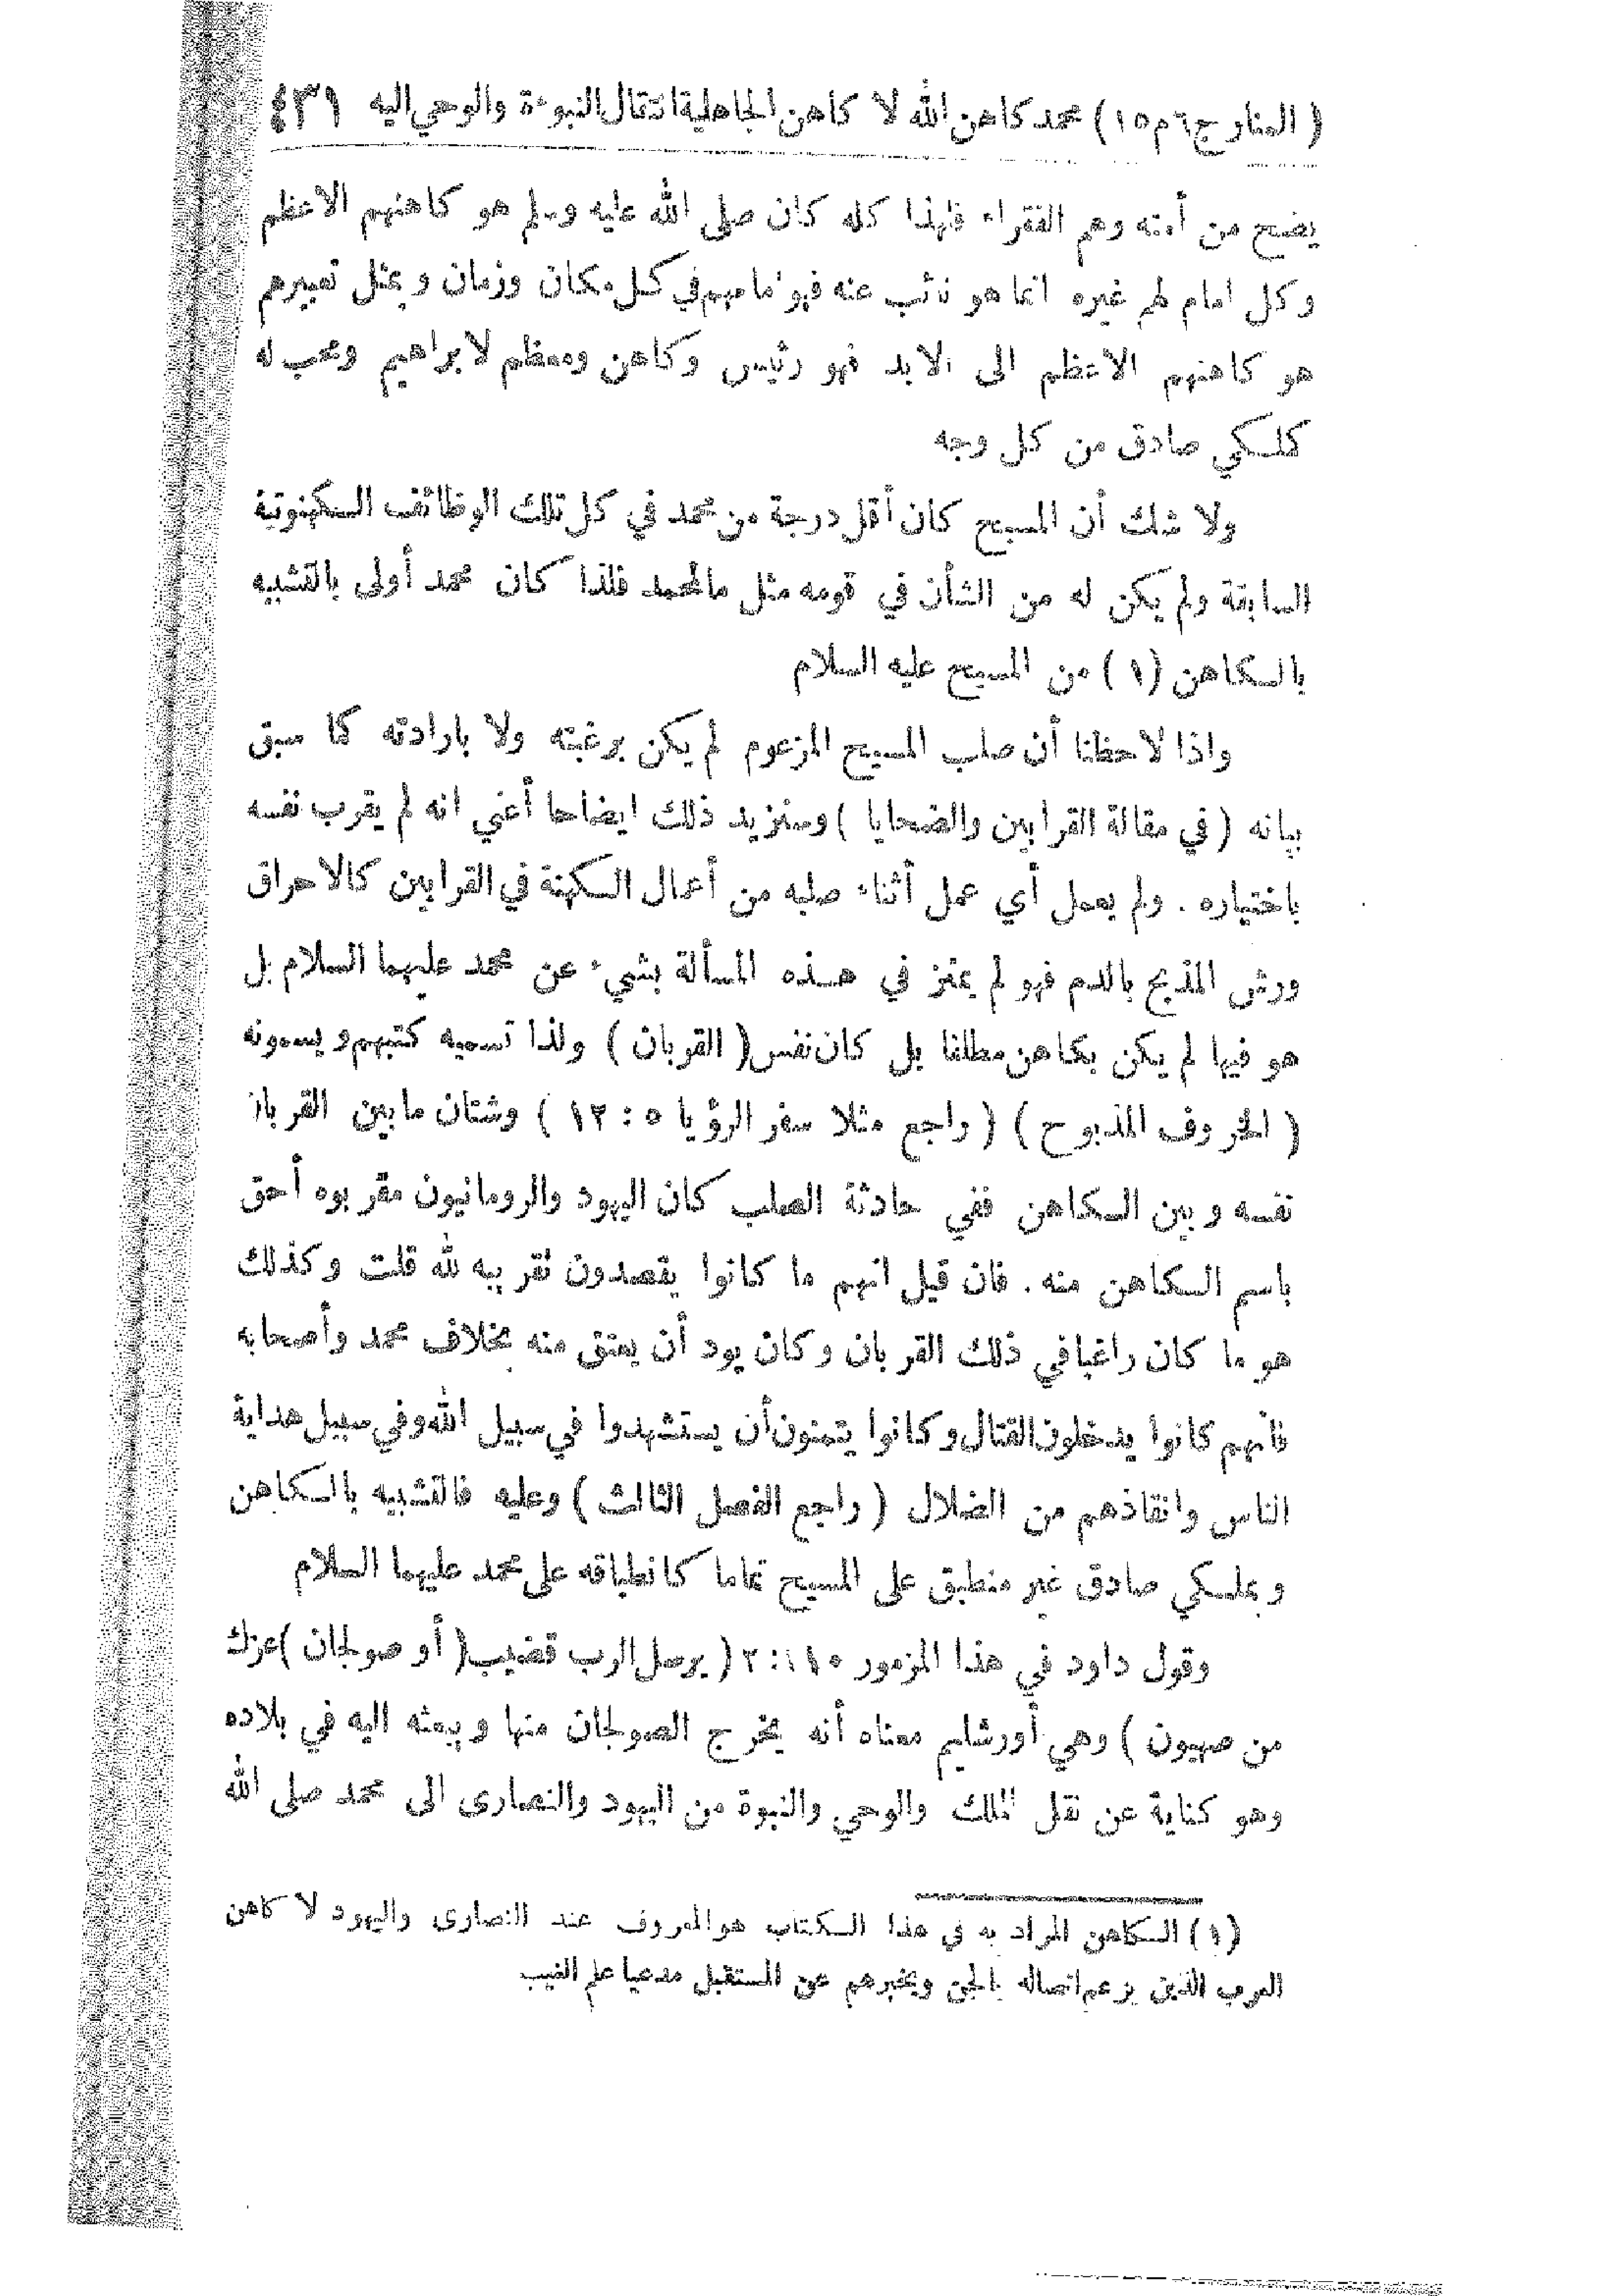 ( المنار ج ٦ م ١٥ ) محمد كاهن الله لا كاهن الجاهلية انتقال النبوءة والوحي اليه ٤٣٩
يضح من أمته وهم الفقراء فلهذا كله كان صلى الله عليه وسلم هو كاهنهم الاعظم
وكل امام لهم غيره انما هو نائب عنه فهو امامهم في كل مكان وزمان وبمثل تعبيرهم
هو كاهنهم الاعظم الى الابد فهو رئيس وكاهن ومعظم لابراهيم ومحب له
كملكي صادق من كل وجه
ولا شك أن المسيح كان أقل درجة من محمد في كل تلك الوظائف الكهنوتية
السابقة ولم يكن له من الشأن في قومه مثل ما لمحمد فلذا كان محمد أولى بالتشبيه
بالكاهن (١) من المسيح عليه السلام
واذا لاحظنا أن صلب المسيح المزعوم لم يكن برغبته ولا بارادته كما سبق
بيانه ( في مقالة القرابين والضحايا ) وسنزيد ذلك ايضاحا أعني انه لم يقرب نفسه
باختياره . ولم يعمل أي عمل أثناء صلبه من أعمال الكهنة في القرابين كالاحراق
ورش المذبح بالدم فهو لم يمتز في هذه المسألة بشيء عن محمد عليهما السلام بل
هو فيها لم يكن بكاهن مطلقا بل كان نفس ( القربان ) ولذا تسميه كتبهم ويسمونه
( الخروف المذبوح ) ( راجع مثلا سفر الرؤيا ٥ : ١٢ ) وشتان ما بين القربان
نفسه وبين الكاهن ففي حادثة الصلب كان اليهود والرومانيون مقربوه أحق
باسم الكاهن منه . فان قيل انهم ما كانوا يقصدون تقريبه لله قلت وكذلك
هو ما كان راغبا في ذلك القربان وكان يود أن يعتق منه بخلاف محمد وأصحابه
فانهم كانوا يدخلون القتال وكانوا يتمنون أن يستشهدوا في سبيل الله وفي سبيل هداية
الناس وانقاذهم من الضلال ( راجع الفصل الثالث ) وعليه فالتشبيه بالكاهن
وبملكي صادق غير منطبق على المسيح تماما كانطباقه على محمد عليهما السلام
وقول داود في هذا المزمور ١١٠ : ٢ ( يرسل الرب قضيب ( أو صولجان ) عزك
من صهيون ) وهي أورشليم معناه أنه يخرج الصولجان منها ويبعثه اليه في بلاده
وهو كناية عن نقل الملك والوحي والنبوة من اليهود والنصارى الى محمد صلى الله
(١) الكاهن المراد به في هذا الكتاب هو المعروف عند النصارى واليهود لا كاهن
العرب الذين يزعم اتصاله بالجن ويخبرهم عن المستقبل مدعيا علم الغيب